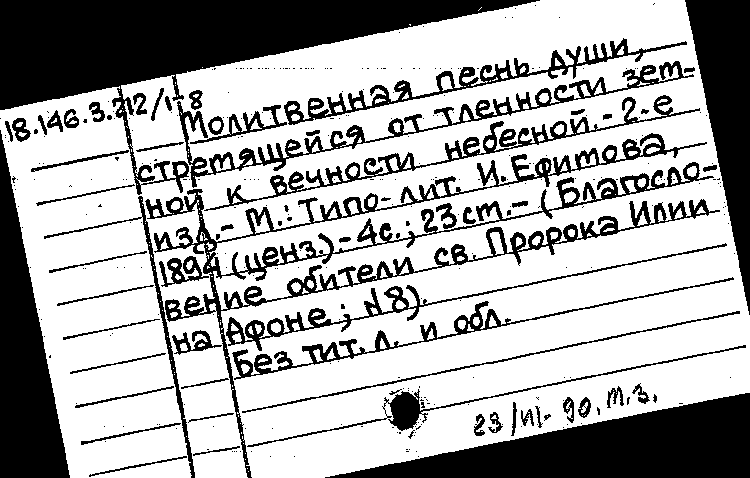 18.146.3.212/1-8
Молитвенная песнь души,
стремящейся от тленности зем-
ной к вечности небесной.- 2-е
изд.- М.: Типо-лит. И. Ефимова,
1894 (ценз.).- 4с.; 23см.- (Благосло-
вение обители св. Пророка Илии
на Афоне; N8).
Без тит. л. и обл.
23/VI- 90. М.З.